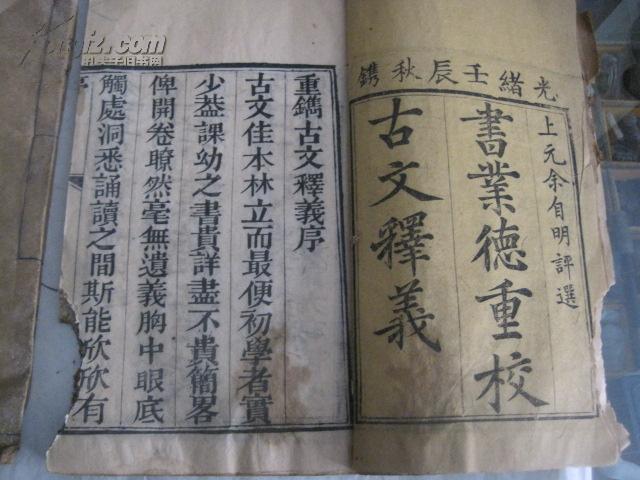 光緒壬辰秋鐫
上元余自明評選
書業德重校
古文釋義
重鐫古文釋義序
古文佳本林立而最便初學者實
少蓋課幼之書貴詳盡不貴簡畧
俾開卷瞭然毫無遺義胸中眼底
觸處洞悉誦讀之間斯能欣欣有